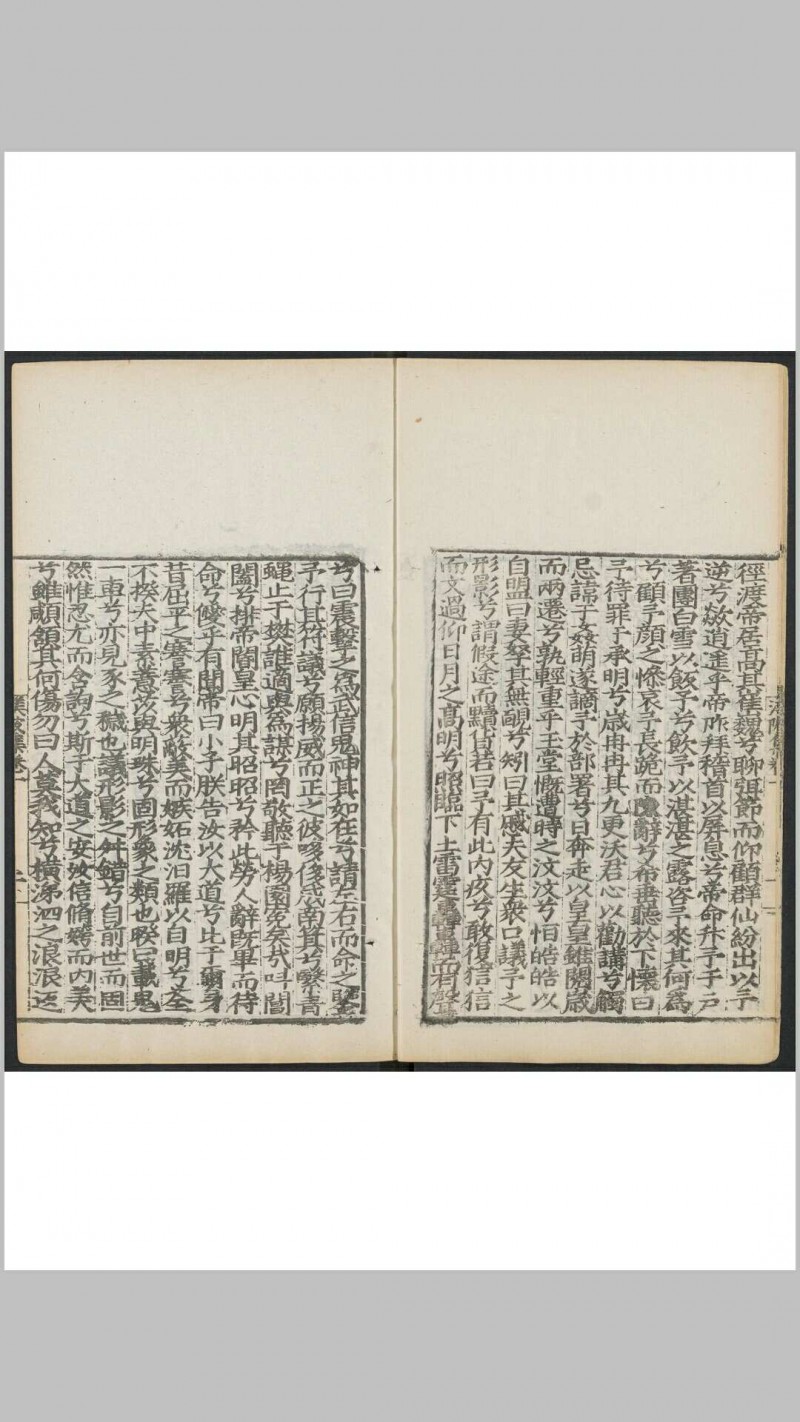 徑渡帝居高其崔巍兮聊弭節而仰顧群仙紛出以予
逆兮欻逍遥乎帝所拜稽首以屏息兮帝命升予于戶
著團白雪以飯予兮飲予以湛湛之露咨予來其何爲
兮顧予顔之慘哀予長跪而陳辭兮希垂聽於下懷曰
予待罪于承明兮歳冉冉其九更沃君心以勸講兮觸
忌諱于姦萌遂謫予於部署兮日奔走以皇皇雖閱歳
而兩遷兮孰輕重乎玉堂慨遭時之汶汶兮恒皓皓以
自盟曰妻孥其無覷兮矧曰其戚夫友生衆口議予之
形影兮謂假途而黷貨若曰予有此内疚兮敢復狺狺
而文過仰日月之高明兮昭臨下土雷霆轟轟而有聲
兮曰震擊之爲武信鬼神其如在兮請左右而命之鑒
予行其符議兮願揚威而正之彼哆侈成南箕兮繄青
蝇止于樊誰適與爲謀兮罔敬聽于楊園寃矣哉叫閶
闔兮排帝閽皇心明其昭昭兮矜此勞人辭既畢而待
命兮僾乎有聞帝曰小子朕告汝以大道兮比于爾身
昔屈平之謇謇兮衆蔽美而嫉妬沈汨羅以自明兮荃
不揆夫中素薏苡與明珠兮固形象之類也睽曰載鬼
一車兮亦見豕之穢也議形影之舛錯兮自前世而固
然惟忍尤而含詢兮斯予大道之安汝信脩姱而内美
兮雖顑頷其何傷勿曰人莫我知兮橫涕泗之浪浪迓